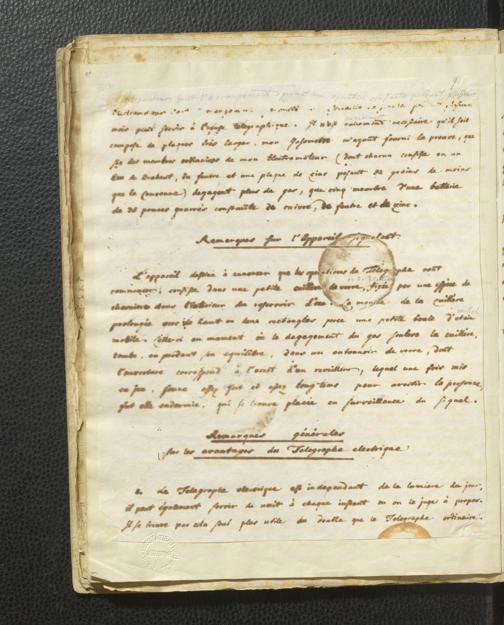 mais peut servir à l'usage telegraphique. Il n'est aucunement necessaire qu'il soit
composé de plaques très larges, mon Gasometre m'ayant fourni la preuve, que
six des membres ordinaires de mon Electromoteur (dont chacun consiste en un
de feutre et une plaque de zinc pesant de moins
que la couronne) degagent plus de gas, que cinq membres d'une batterie
de 36 pouces quarrés construite de cuivre, de feutre et de zinc.
Remarques sur l'Appareil signalant.
L'appareil destiné à annoncer que les questions de Telegraphe vont
commencer, consiste dans une petite cuillere de verre, fixée par une espèce de
charniere dans l'interieur du reservoir d'eau. Le manche de la cuillère
prolongée vers le haut en deux rectangles porte une petite boule d'étain
mobile. Celle-ci au moment où le degagement du gas souleve la cuillère,
tombe, en perdant son equilibre, dans un entonnoir de verre, dont
l'ouverture correspond à l'arrêt d'un reveilleur, lequel une fois mis
en jeu, sonne assez fort et assez long-tems pour avertir la personne,
fut elle endormie, qui se trouve placée en surveillance du signal.
Remarques générales
sur les avantages du Telegraphe electrique
Le Telegraphe electrique est independant de la lumiere du jour,
il peut également servir de nuit à chaque instant où on le juge à propos.
Il se trouve par cela seul plus utile du double que le Telegraphe ordinaire.